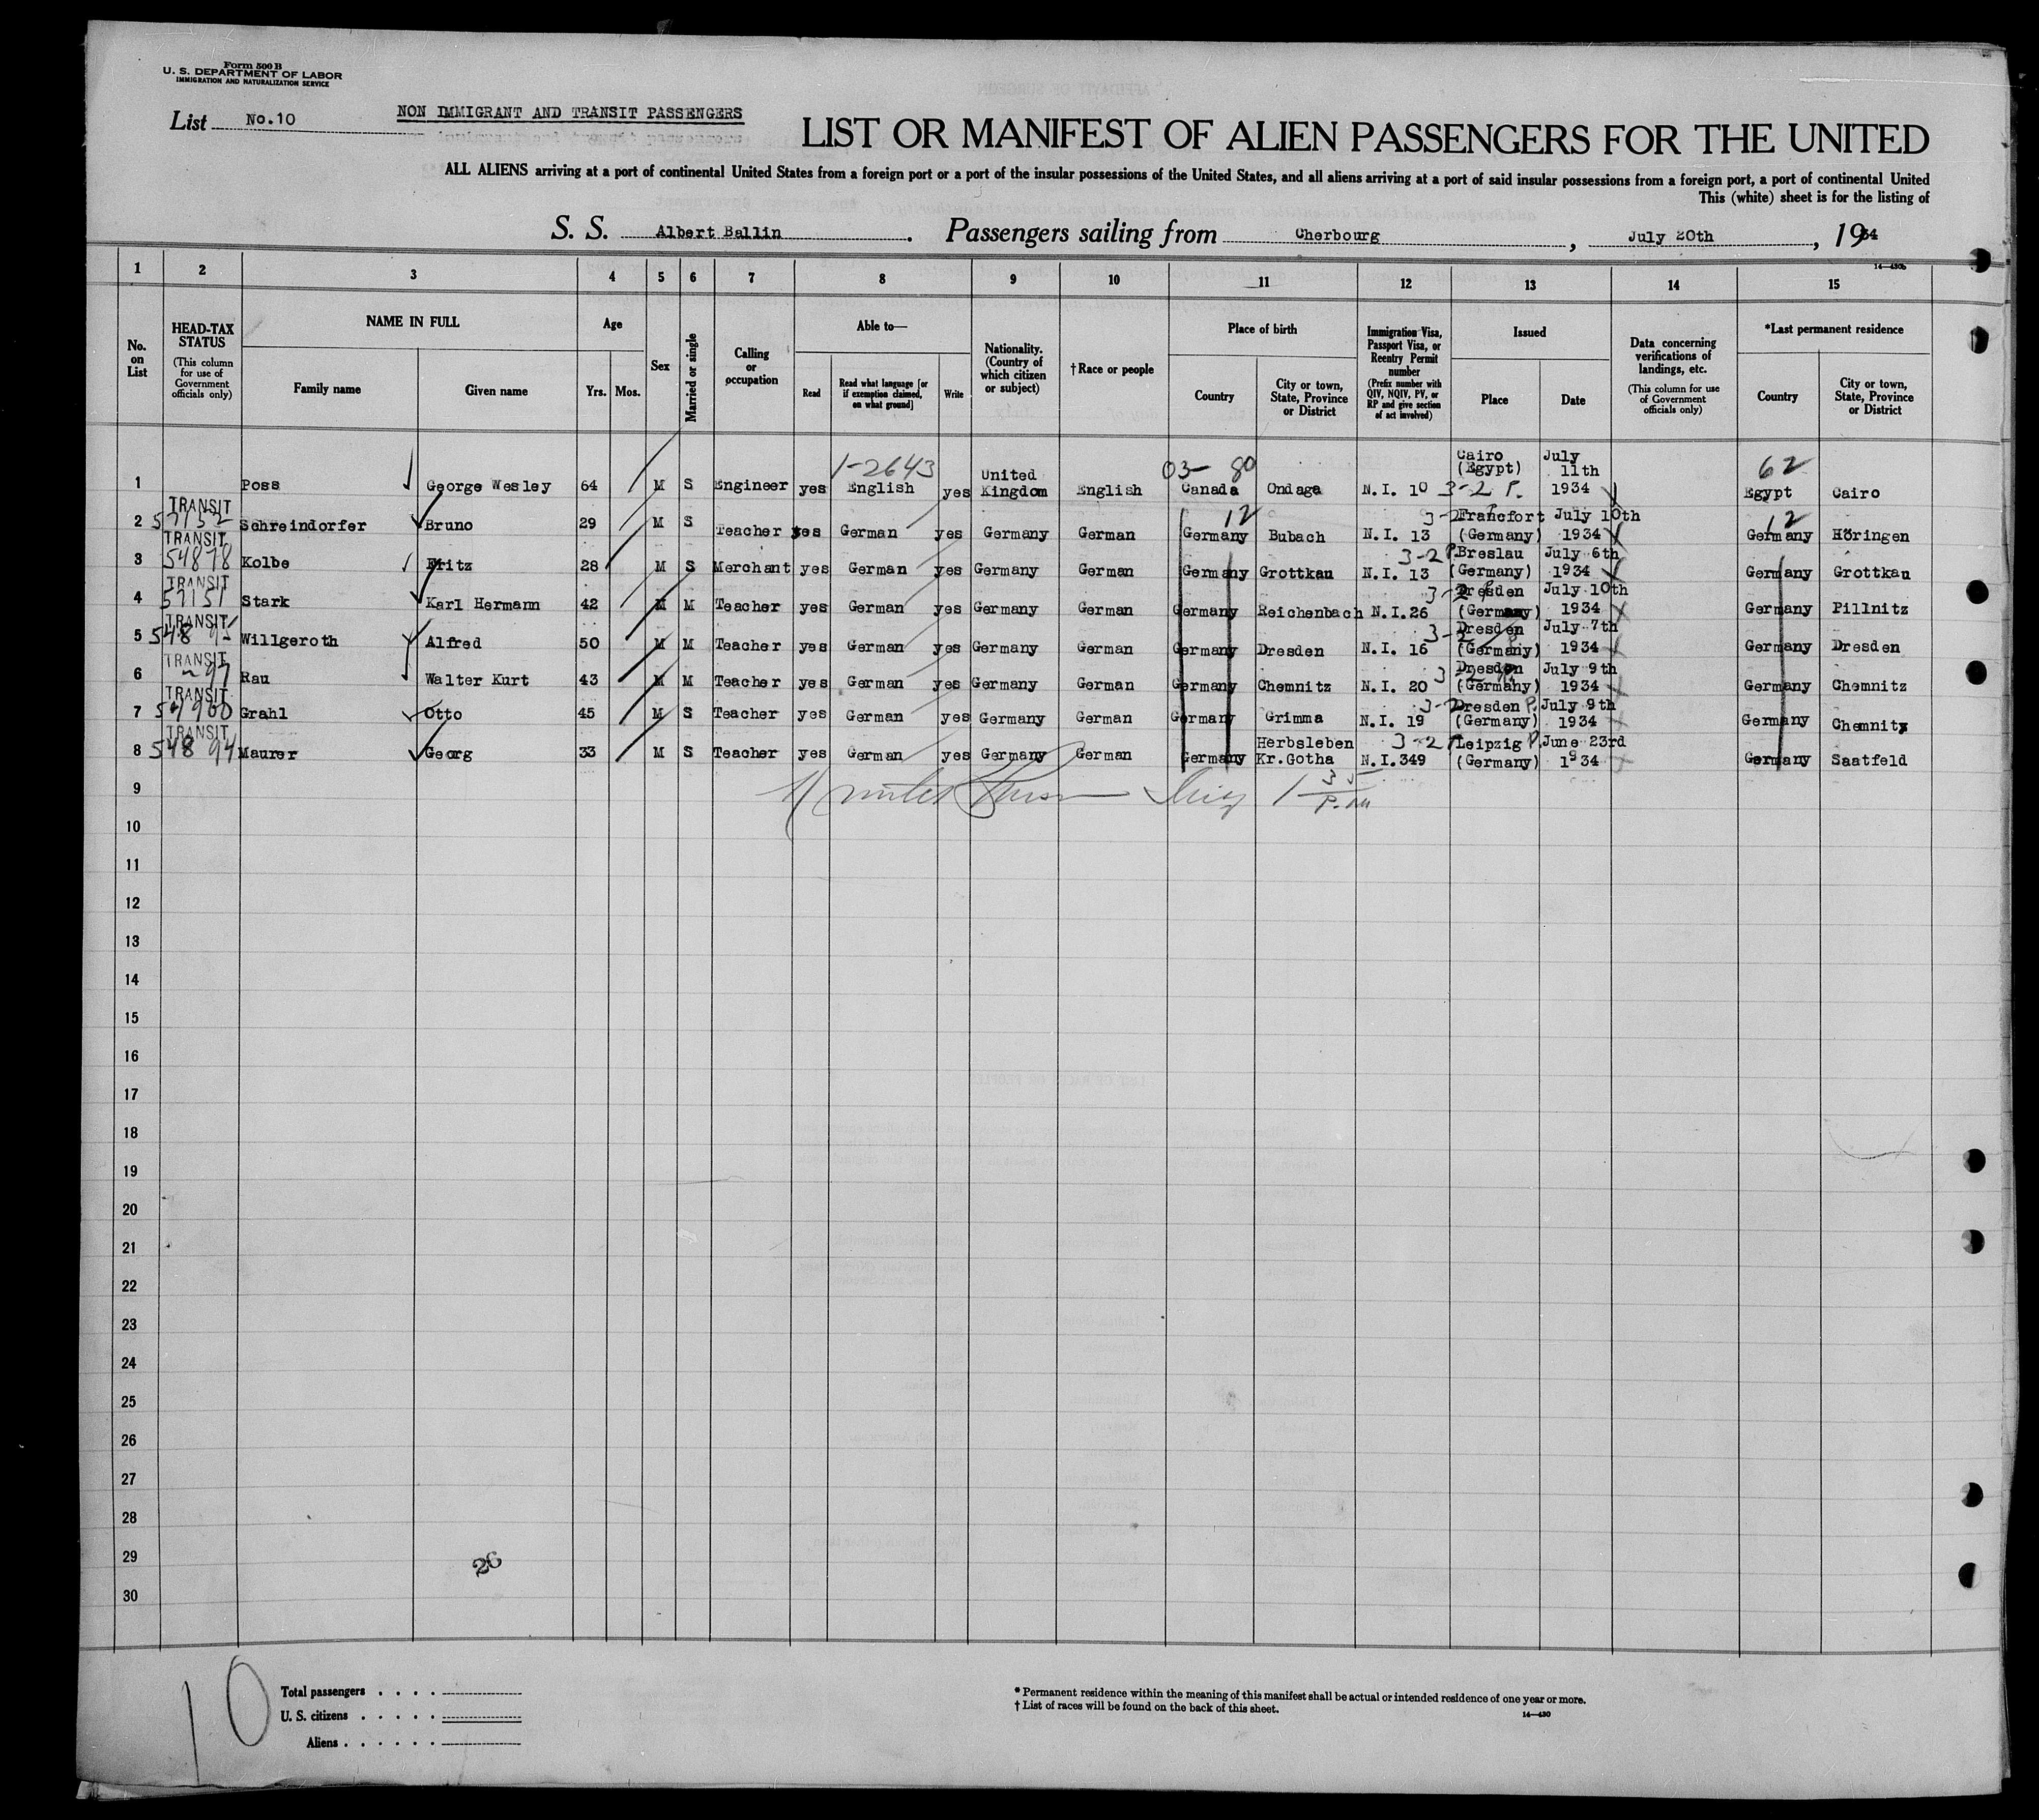 Form 500 B
U. S. DEPARTMENT OF LABOR
IMMIGRATION AND NATURALIZATION SERVICE
List No.10 NON IMMIGRANT AND TRANSIT PASSENGERS
LIST OR MANIFEST OF ALIEN PASSENGERS FOR THE UNITED
ALL ALIENS arriving at a port of continental United States from a foreign port or a port of the insular possessions of the United States, and all aliens arriving at a port of said insular possessions from a foreign port, a port of continental United
This (white) sheet is for the listing of
S. S. Albert Ballin. Passengers sailing from Cherbourg, July 20th, 1934
14—430b
1 2 3 4 5 6 7 8 9 10 11 12 13 14 15
No. on List
HEAD-TAX STATUS (This column for use of Government officials only)
NAME IN FULL
Family name Given name
Age
Yrs. Mos.
Sex
Married or single
Calling or occupation
Able to—
Read Read what language [or if exemption claimed, on what ground] Write
Nationality. (Country of which citizen or subject)
†Race or people
Place of birth
Country City or town, State, Province or District
Immigration Visa, Passport Visa, or Reentry Permit number (Prefix number with QIV, NQIV, PV, or RP and give section of act involved)
Issued
Place Date
Data concerning verifications of landings, etc. (This column for use of Government officials only)
*Last permanent residence
Country City or town, State, Province or District
1-2643 03- 80 62
1 Poss George Wesley 64 M S Engineer yes English yes United Kingdom English Canada Ondaga N.I. 10 3-2 P. Cairo (Egypt) July 11th 1934 Egypt Cairo
12 12
2 TRANSIT 57152 Schreindorfer Bruno 29 M S Teacher yes German yes Germany German Germany Bubach N.I. 13 3-2 Francfort (Germany) July 10th 1934 Germany Höringen
3 TRANSIT 54878 Kolbe Fritz 28 M S Merchant yes German yes Germany German Germany Grottkau N.I. 13 3-2 P. Breslau (Germany) July 6th 1934 Germany Grottkau
4 TRANSIT 57151 Stark Karl Hermann 42 M M Teacher yes German yes Germany German Germany Reichenbach N.I.26 3-2 P Dresden (Germany) July 10th 1934 Germany Pillnitz
5 TRANSIT 548 95 Willgeroth Alfred 50 M M Teacher yes German yes Germany German Germany Dresden N.I. 16 3-2 Dresden (Germany) July 7th 1934 Germany Dresden
6 TRANSIT 97 Rau Walter Kurt 43 M M Teacher yes German yes Germany German Germany Chemnitz N.I. 20 3 Dresden (Germany) July 9th 1934 Germany Chemnitz
7 TRANSIT 54900 Grahl Otto 45 M S Teacher yes German yes Germany German Germany Grimma N.I. 19 3-2 Dresden P. (Germany) July 9th 1934 Germany Chemnitz
8 TRANSIT 548 94 Maurer Georg 33 M S Teacher yes German yes Germany German Germany Herbsleben Kr.Gotha N.I.349 3-2 Leipzig P. (Germany) June 23rd 1934 Germany Saatfeld
9
10
11
12
13
14
15
16
17
18
19
20
21
22
23
24
25
26
27
28
29
26
30
10
Total passengers . . . .
U. S. citizens . . . . .
Aliens . . . . . .
* Permanent residence within the meaning of this manifest shall be actual or intended residence of one year or more.
† List of races will be found on the back of this sheet.
14—430